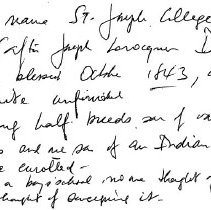 name St. Joseph College
after Joseph Larocque
blessed October 1843,
quite unfinished
half breeds, son of
and one son of an Indian
enrolled -
a boys' school, no one thought of
thought of it.